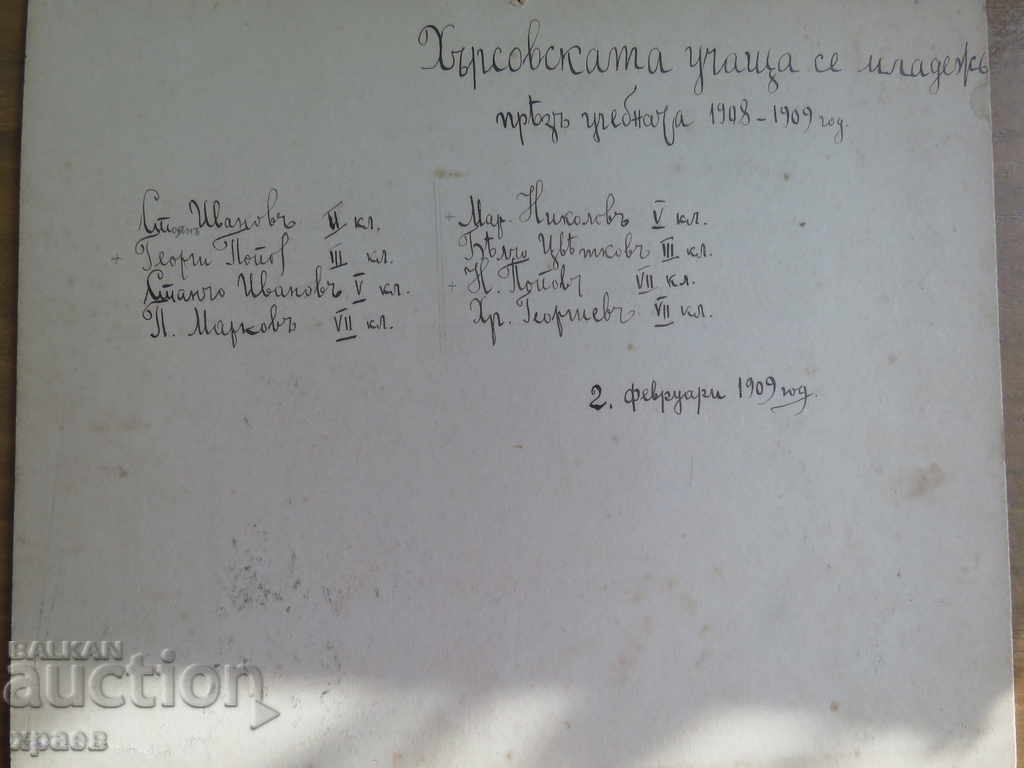 Хърсовската учаща се младежь
прѣзъ учебната 1908-1909 год.
Стоянъ Ивановъ II кл.
+ Георги Попов III кл.
Станчо Ивановъ V кл.
П. Марковъ VII кл.
+ Мар. Николовъ V кл.
Бѣлчо Цвѣтковъ III кл.
+ Н. Поповъ VII кл.
Хр. Георгиевъ VII кл.
2. февруари 1909 год.
BALKAN
auction
храов